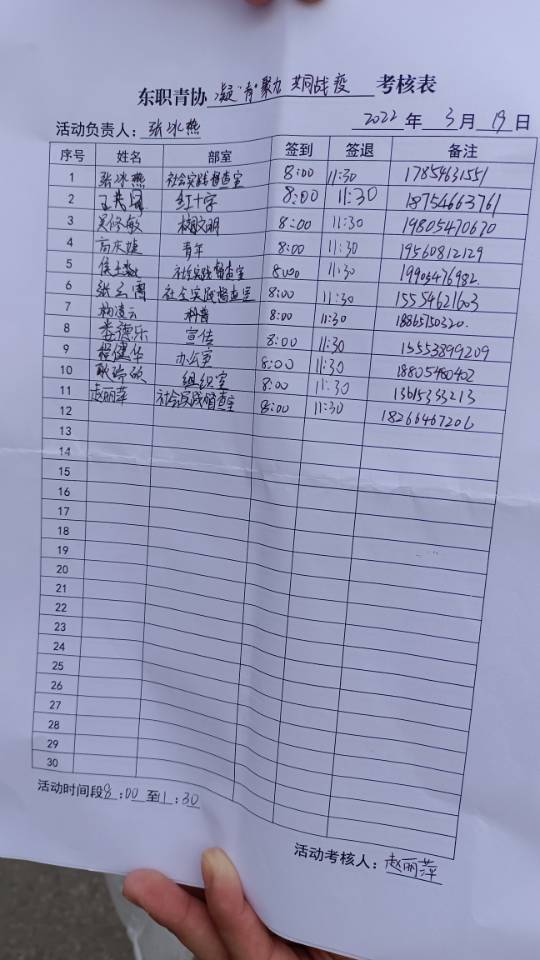 东职青协 凝"青"聚力 共同战疫 考核表
活动负责人：张冰燕 2022 年 3 月 19 日
序号 姓名 部室 签到 签退 备注
1 张冰燕 社会实践督查室 8:00 11:30 17854631551
2 红十字 8:00 11:30 18754663761
3 吴修敏 8:00 11:30 19805470670
4 青年 8:00 11:30 19560812129
5 社会实践督查室 8:00 11:30 19905476982
6 社会实践督查室 8:00 11:30 15554621603
7 科普 8:00 11:30 18865750320
8 李德乐 宣传 8:00 11:30 15553899209
9 程健华 办公室 8:00 11:30 18805460402
10 组织室 8:00 11:30 13615353213
11 赵丽萍 社会实践督查室 8:00 11:30 18266467206
12
13
14
15
16
17
18
19
20
21
22
23
24
25
26
27
28
29
30
活动时间段8:00 至11:30
活动考核人：赵丽萍